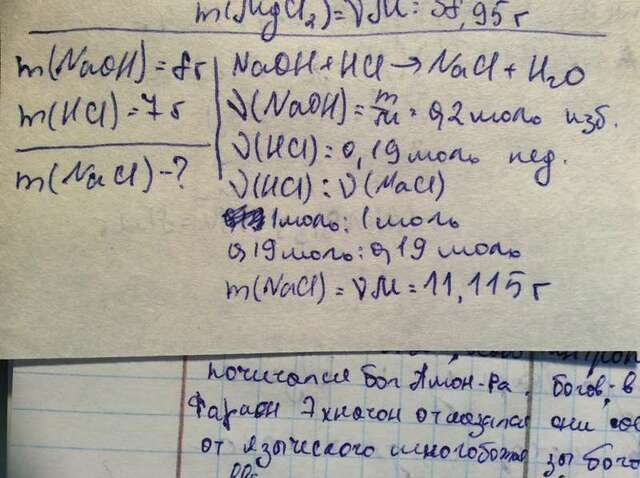 m(MgCl₂)=νM=38,95 г
m(NaOH)=8г
m(HCl)=7г
m(NaCl)-?
NaOH+HCl→NaCl+H₂O
ν(NaOH)=m/M=0,2 моль изб.
ν(HCl)=0,19 моль нед.
ν(HCl):ν(NaCl)
1 моль:1 моль
0,19 моль:0,19 моль
m(NaCl)=νM=11,115 г
почитался бог Амон-Ра.
Фараон Эхнатон отказался
от языческого многобожия
богов, в
они сов
зы бого